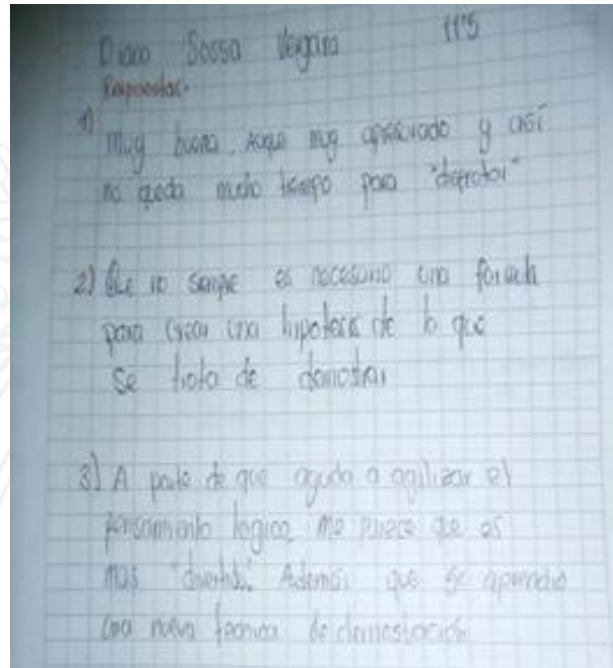 Diana Sossa Vergara 11°5
Respuestas.
1)
Muy buena, aunque muy apresurado y así
no queda mucho tiempo para "disfrutar"
2) Que no siempre es necesario una formula
para crear una hipotesis de lo que
se trata de demostrar
3) A parte de que ayuda a agilizar el
pensamiento logico, me parece que es
mas "divertido". Además que se aprendio
una nueva tecnica de demostración